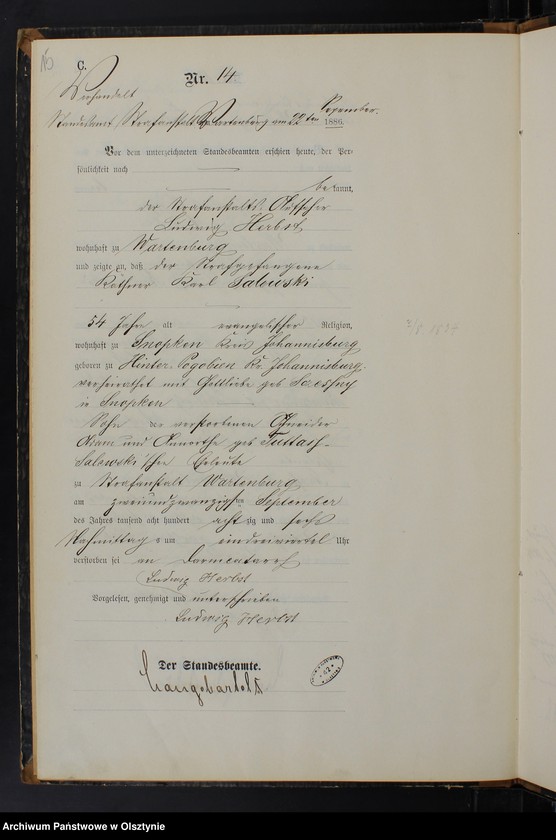 C.
Nr. 14
Verhandelt
Standesamt Strafanstalt Wartenburg am 22ten
September 1886.
Vor dem unterzeichneten Standesbeamten erschien heute, der Per-
sönlichkeit nach
bekannt,
der Strafanstalts-Aufseher
Ludwig Herbst
wohnhaft zu Wartenburg
und zeigte an, daß der Strafgefangene
Käthner Karl Salewski
54 Jahr alt evangelischer Religion,
wohnhaft zu Snopken Kreis Johannisburg
geboren zu Hinter-Pogobien Kr. Johannisburg.
verheirathet mit Gottliebe geb
in Snopken
Sohn der verstorbenen Schneider
Adam und geb
Salewski'schen Eheleute
zu Strafanstalt Wartenburg
am zweiundzwanzigsten September
des Jahres tausend acht hundert achtzig und sechs
Nachmittags um eindreiviertel Uhr
verstorben sei an Darmcatarrh
Ludwig Herbst
Vorgelesen, genehmigt und unterschrieben
Ludwig Herbst
Der Standesbeamte.
Langebartels
Archiwum Państwowe w Olsztynie